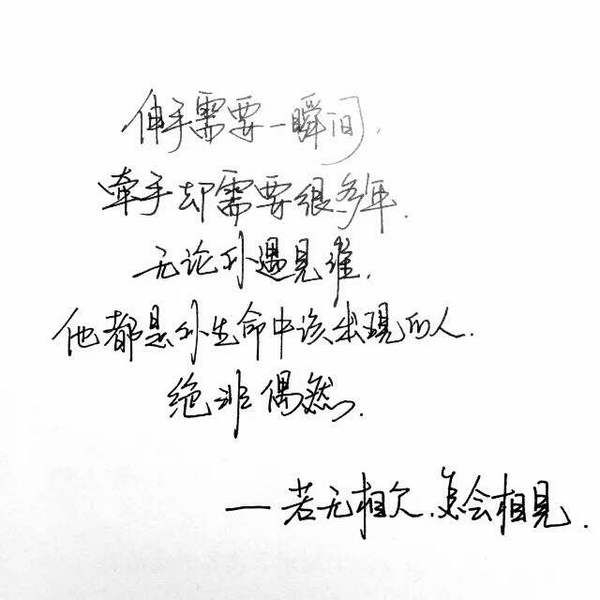 伸手需要一瞬间，
牵手却需要很多年．
无论你遇见谁，
他都是你生命中该出現的人．
绝非偶然．
—若无相欠、怎会相見．